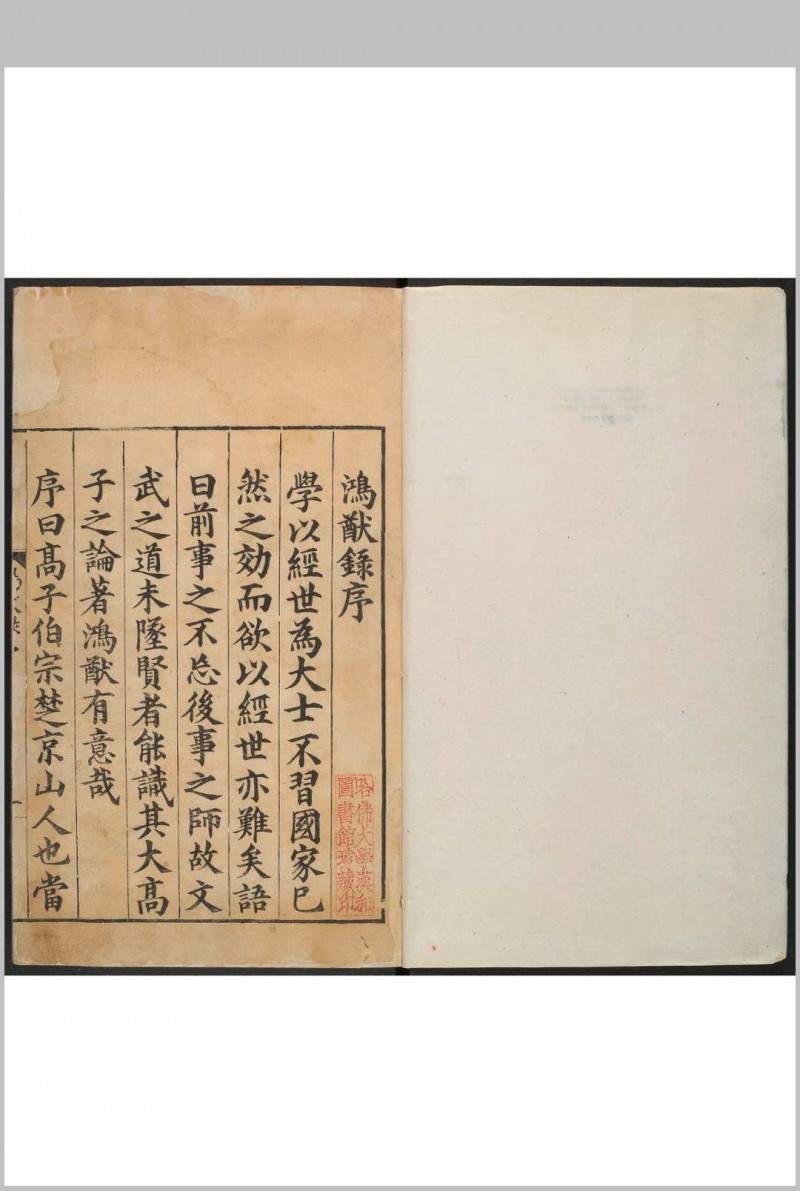 鴻猷錄序
學以經世為大士不習國家已
然之効而欲以經世亦難矣語
曰前事之不忘後事之師故文
武之道未墜賢者能識其大高
子之論著鴻猷有意哉
序曰高子伯宗楚京山人也當
哈佛大學漢和
圖書館珍藏印